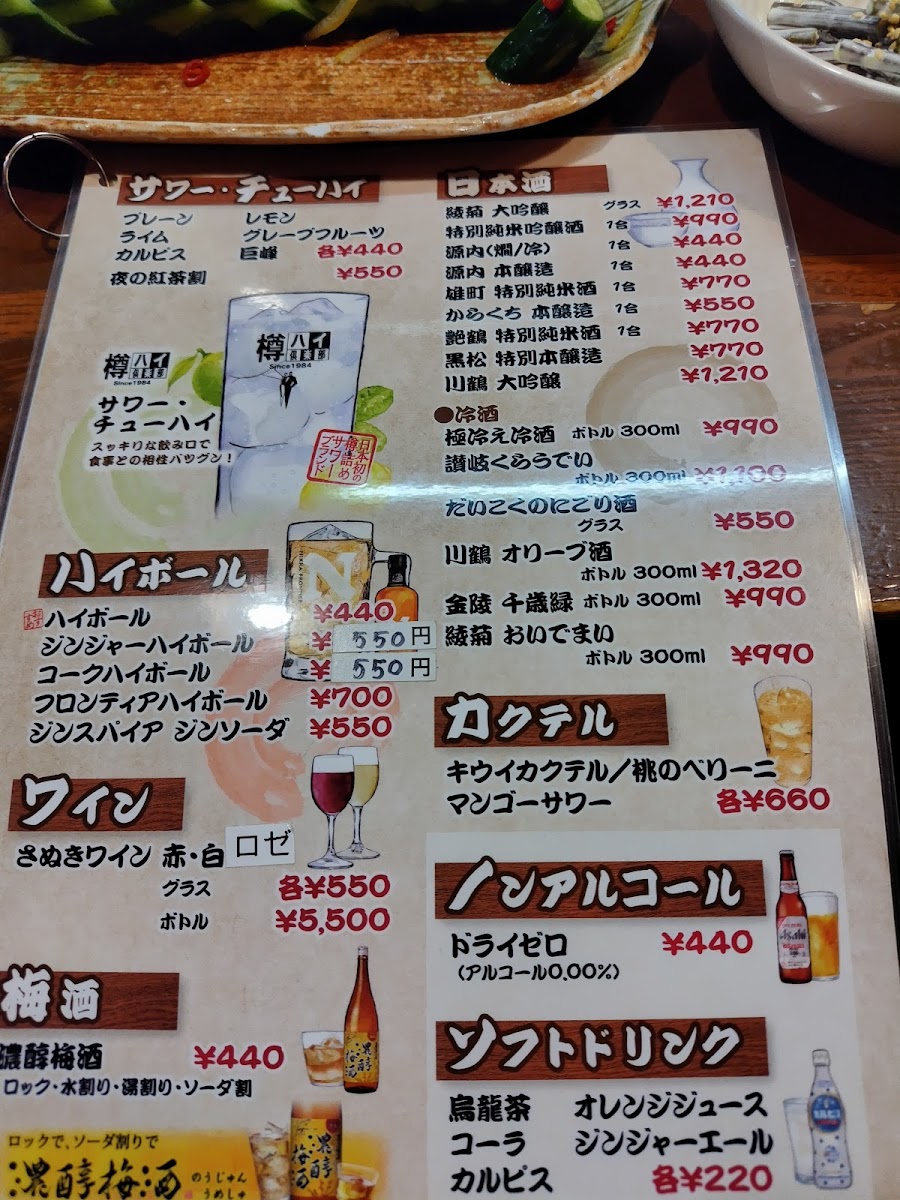 サワー・チューハイ
プレーン レモン
ライム グレープフルーツ
カルピス 巨峰 各¥440
夜の紅茶割 ¥550
樽ハイ倶楽部
Since1984
樽ハイ倶楽部
Since1984
サワー・
チューハイ
スッキリな飲み口で
食事との相性バツグン!
日本初の
樽詰め
サワー
ブランド
ハイボール
おすすめ
ハイボール ¥440
ジンジャーハイボール ¥550円
コークハイボール ¥550円
フロンティアハイボール ¥700
ジンスパイア ジンソーダ ¥550
ワイン
さぬきワイン 赤・白 ロゼ
グラス 各¥550
ボトル ¥5,500
梅酒
濃醇梅酒 ¥440
ロック・水割り・湯割り・ソーダ割
濃醇梅酒
ロックで、ソーダ割りで
濃醇梅酒 のうじゅん
うめしゅ
濃醇梅酒
日本酒
綾菊 大吟醸 グラス ¥1,210
特別純米吟醸酒 1合 ¥990
源内(燗/冷) 1合 ¥440
源内 本醸造 1合 ¥440
雄町 特別純米酒 1合 ¥770
からくち 本醸造 1合 ¥550
艶鶴 特別純米酒 1合 ¥770
黒松 特別本醸造 ¥770
川鶴 大吟醸 ¥1,210
●冷酒
極冷え冷酒 ボトル 300ml ¥990
讃岐くらうでぃ
ボトル 300ml ¥1,100
だいこくのにごり酒
グラス ¥550
川鶴 オリーブ酒
ボトル 300ml ¥1,320
金陵 千歳緑 ボトル 300ml ¥990
綾菊 おいでまい
ボトル 300ml ¥990
カクテル
キウイカクテル/桃のベリーニ
マンゴーサワー 各¥660
ノンアルコール
ドライゼロ ¥440
(アルコール0.00%)
Asahi
ソフトドリンク
烏龍茶 オレンジジュース
コーラ ジンジャーエール
カルピス 各¥220
カルピス